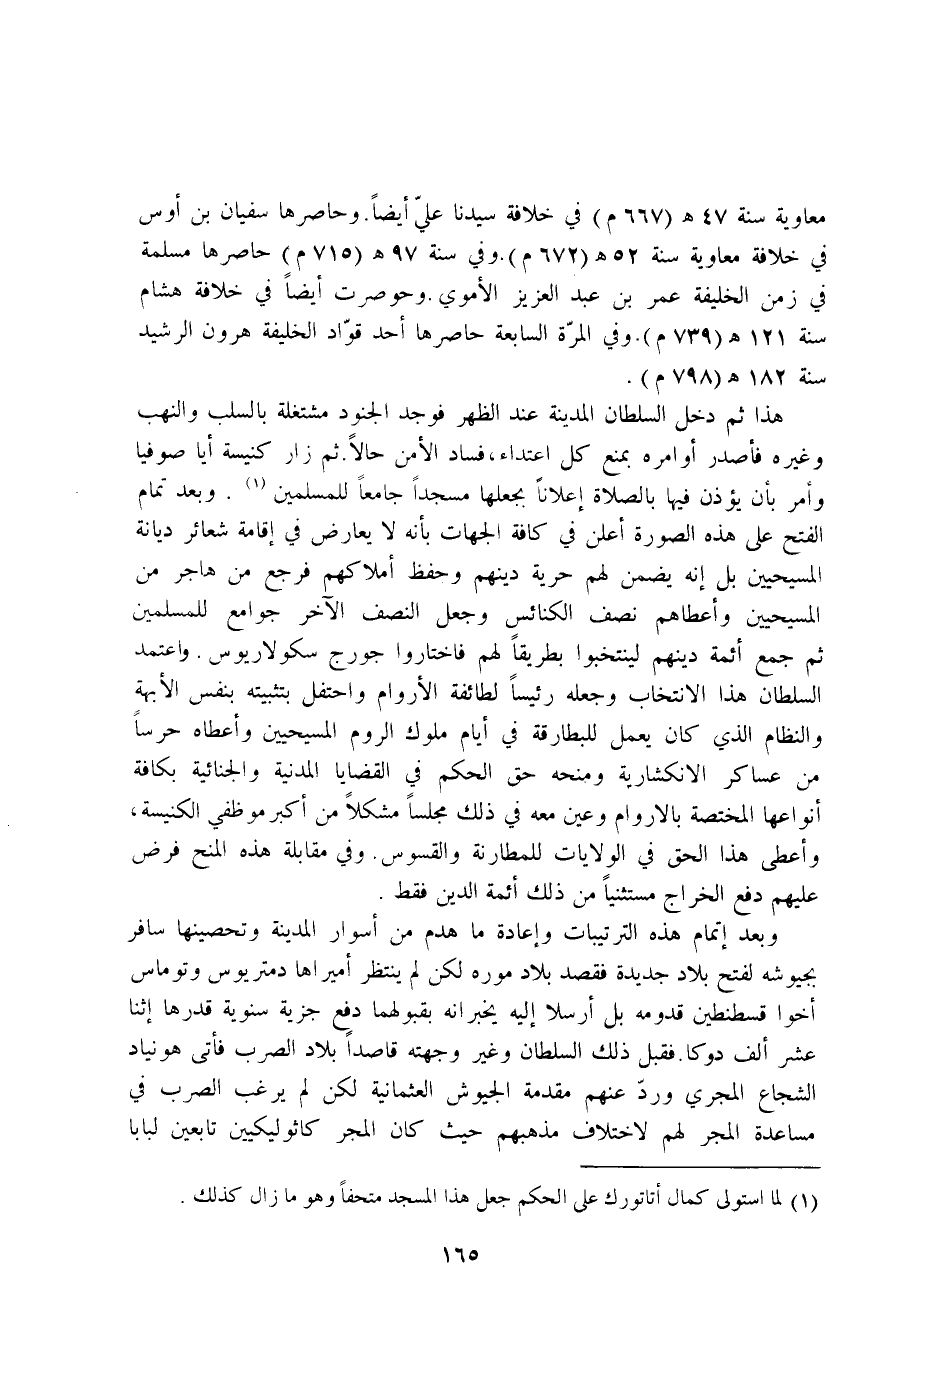 معاوية سنة ٤٧ ه (٦٦٧ م) في خلافة سيدنا عليّ أيضاً. وحاصرها سفيان بن أوس
في خلافة معاوية سنة ٥٢ ه (٦٧٢ م). وفي سنة ٩٧ ه (٧١٥ م) حاصرها مسلمة
في زمن الخليفة عمر بن عبد العزيز الأموي. وحوصرت أيضاً في خلافة هشام
سنة ١٢١ ه (٧٣٩ م). وفي المرّة السابعة حاصرها أحد قوّاد الخليفة هرون الرشيد
سنة ١٨٢ ه (٧٩٨ م) .
هذا ثم دخل السلطان المدينة عند الظهر فوجد الجنود مشتغلة بالسلب والنهب
وغيره فأصدر أوامره بمنع كل اعتداء، فساد الأمن حالاً. ثم زار كنيسة أيا صوفيا
وأمر بأن يؤذن فيها بالصلاة إعلاناً بجعلها مسجداً جامعاً للمسلمين (١) . وبعد تمام
الفتح على هذه الصورة أعلن في كافة الجهات بأنه لا يعارض في إقامة شعائر ديانة
المسيحيين بل إنه يضمن لهم حرية دينهم وحفظ أملاكهم فرجع من هاجر من
المسيحيين وأعطاهم نصف الكنائس وجعل النصف الآخر جوامع للمسلمين
ثم جمع أئمة دينهم لينتخبوا بطريقاً لهم فاختاروا جورج سكولاريوس. واعتمد
السلطان هذا الانتخاب وجعله رئيساً لطائفة الأروام واحتفل بتثبيته بنفس الأبهة
والنظام الذي كان يعمل للبطارقة في أيام ملوك الروم المسيحيين وأعطاه حرساً
من عساكر الانكشارية ومنحه حق الحكم في القضايا المدنية والجنائية بكافة
أنواعها المختصة بالاروام وعين معه في ذلك مجلساً مشكلاً من أكبر موظفي الكنيسة،
وأعطى هذا الحق في الولايات للمطارنة والقسوس. وفي مقابلة هذه المنح فرض
عليهم دفع الخراج مستثنياً من ذلك أئمة الدين فقط .
وبعد إتمام هذه الترتيبات وإعادة ما هدم من أسوار المدينة وتحصينها سافر
بجيوشه لفتح بلاد جديدة فقصد بلاد موره لكن لم ينتظر أميراها دمتريوس وتوماس
أخوا قسطنطين قدومه بل أرسلا إليه يخبرانه بقبولهما دفع جزية سنوية قدرها إثنا
عشر ألف دوكا. فقبل ذلك السلطان وغير وجهته قاصداً بلاد الصرب فأتى هونياد
الشجاع المجري وردّ عنهم مقدمة الجيوش العثمانية لكن لم يرغب الصرب في
مساعدة المجر لهم لاختلاف مذهبهم حيث كان المجر كاثوليكيين تابعين لبابا
(١) لما استولى كمال أتاتورك على الحكم جعل هذا المسجد متحفاً وهو ما زال كذلك .
١٦٥